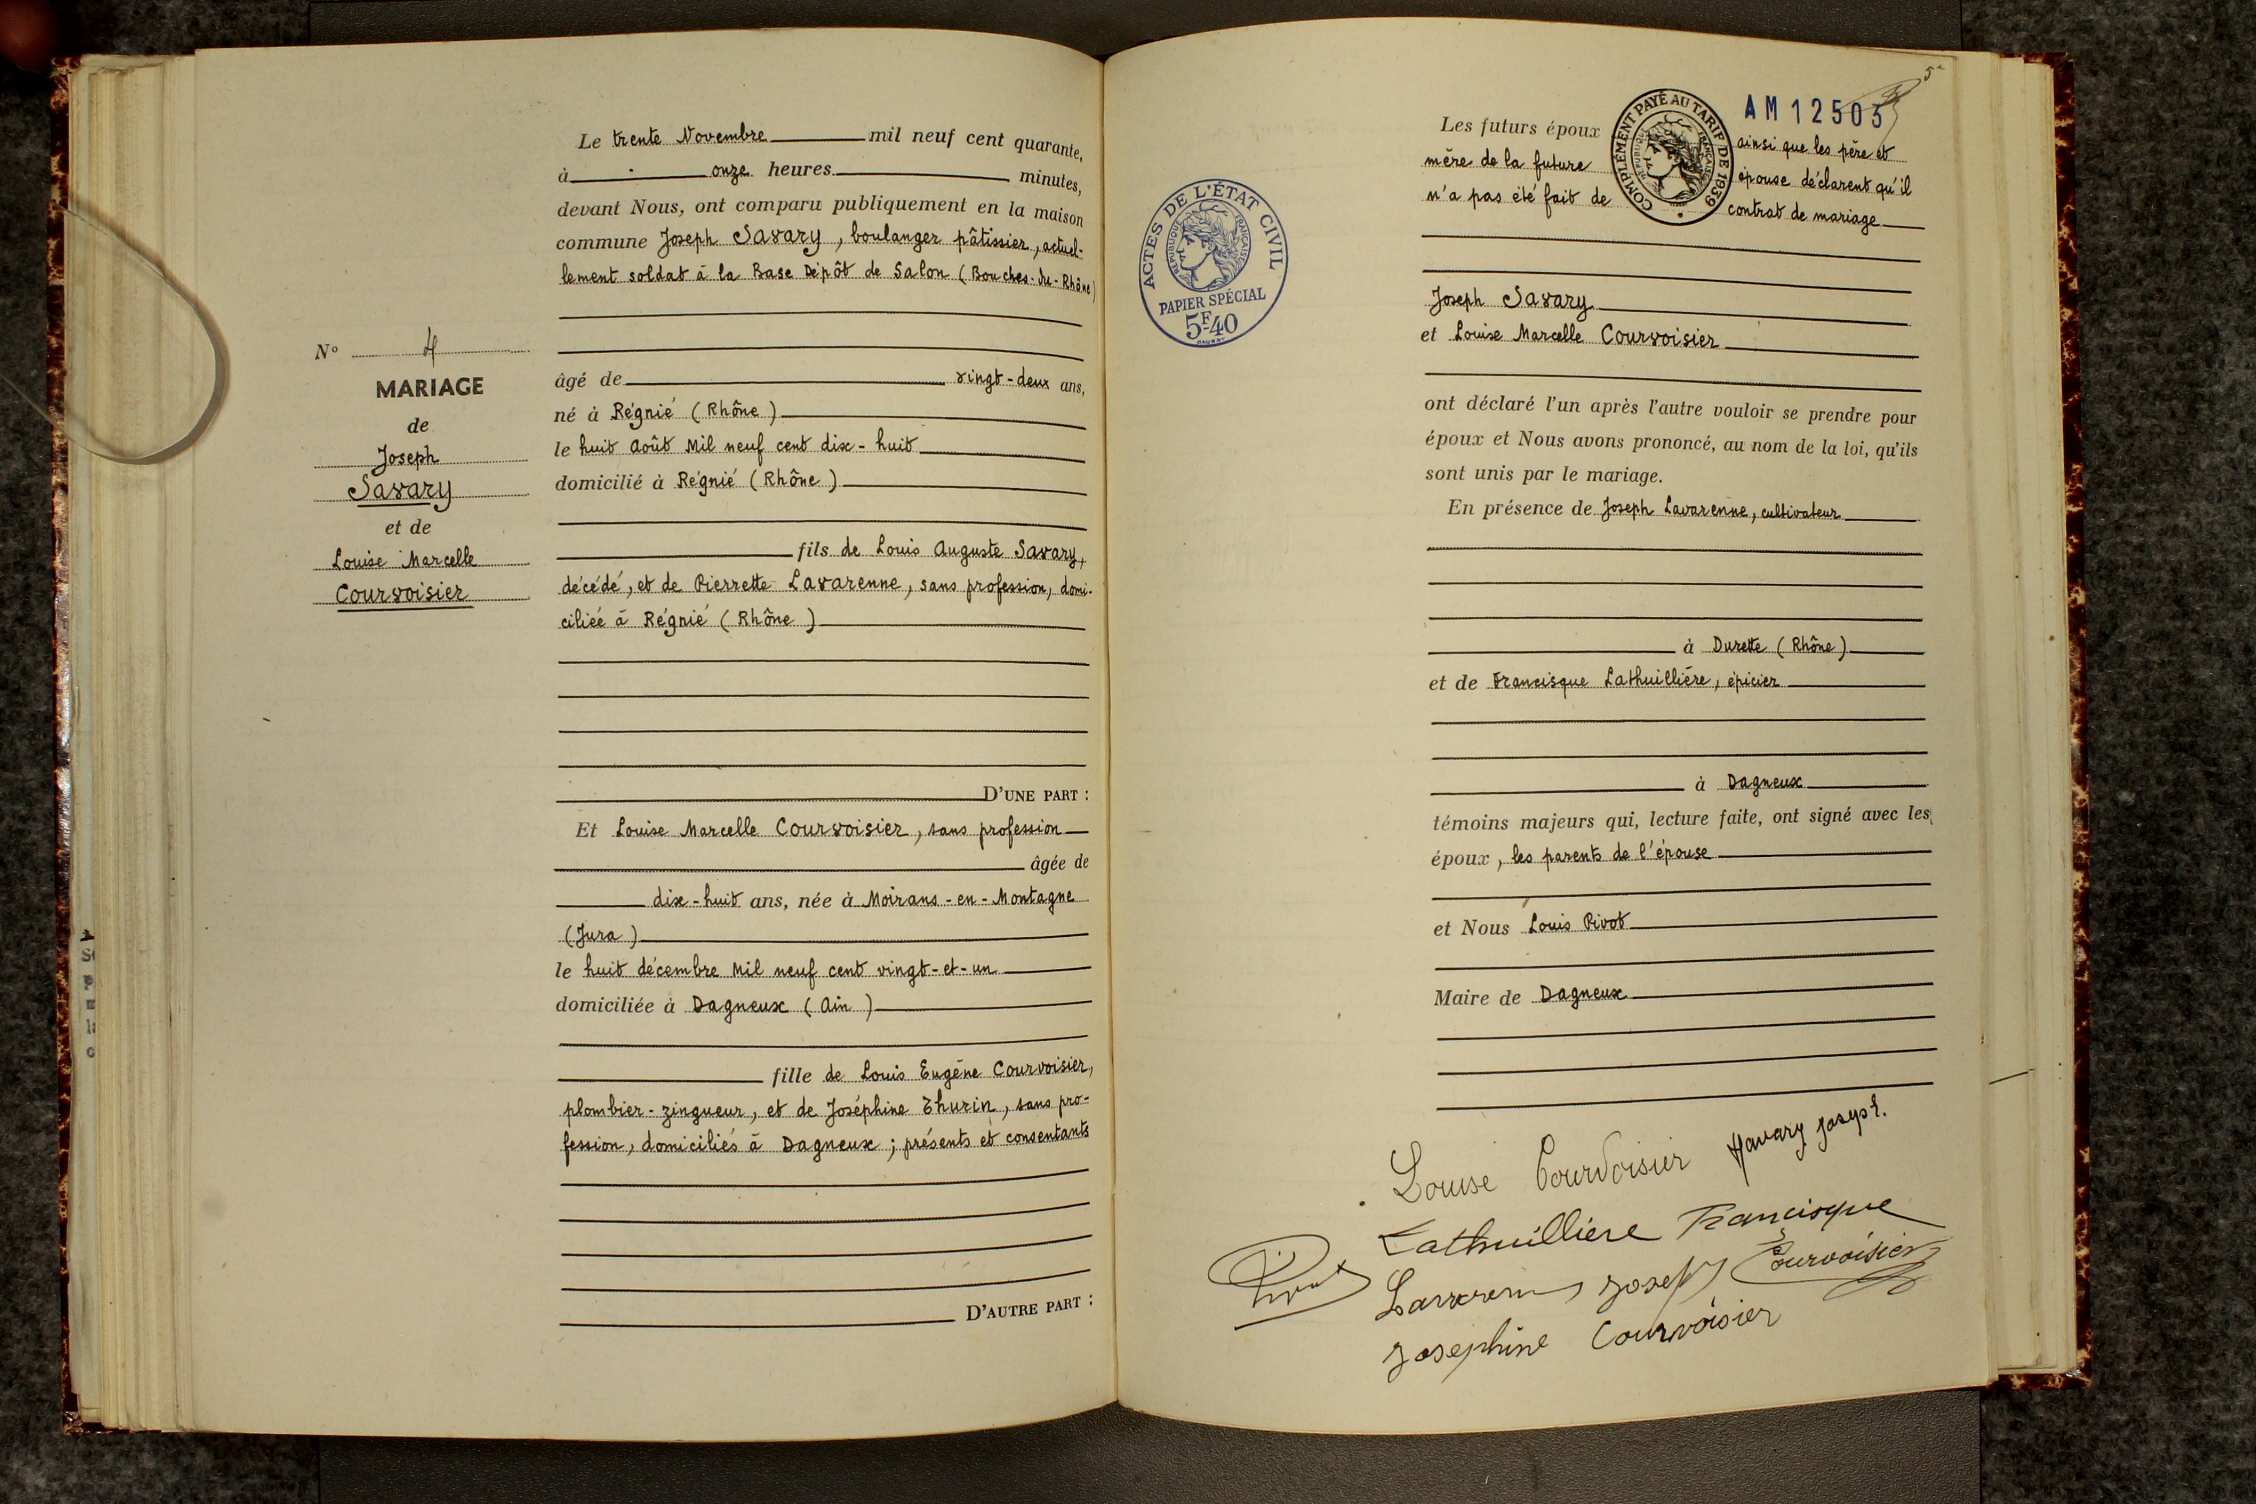 Le trente Novembre mil neuf cent quarante,
à onze heures minutes,
devant Nous, ont comparu publiquement en la maison
commune Joseph Savary, boulanger pâtissier, actuel-
lement soldat à la Base Dépôt de Salon (Bouches-du-Rhône)
N° 4
MARIAGE
de
Joseph
Savary
et de
Louise Marcelle
Courvoisier
âgé de vingt-deux ans,
né à Régnié (Rhône)
le huit Août Mil neuf cent dix-huit
domicilié à Régnié (Rhône)
fils de Louis Auguste Savary,
décédé, et de Pierrette Lavarenne, sans profession, domi-
ciliée à Régnié (Rhône)
D'UNE PART :
Et Louise Marcelle Courvoisier, sans profession
âgée de
dix-huit ans, née à Moirans-en-Montagne
(Jura)
le huit décembre Mil neuf cent vingt-et-un
domiciliée à Dagneux (Ain)
fille de Louis Eugène Courvoisier,
plombier-zingueur, et de Joséphine Thurin, sans pro-
fession, domiciliés à Dagneux ; présents et consentants
D'AUTRE PART :
ACTES DE L'ÉTAT CIVIL
RÉPUBLIQUE FRANÇAISE
PAPIER SPÉCIAL
5F40
5
AM12503
COMPLÉMENT PAYÉ AU TARIF DE 1939
RÉPUBLIQUE FRANÇAISE
Les futurs époux ainsi que les père et
mère de la future épouse déclarent qu'il
n'a pas été fait de contrat de mariage
Joseph Savary
et Louise Marcelle Courvoisier
ont déclaré l'un après l'autre vouloir se prendre pour
époux et Nous avons prononcé, au nom de la loi, qu'ils
sont unis par le mariage.
En présence de Joseph Lavarenne, cultivateur
à Durette (Rhône)
et de Francisque Lathuillière, épicier
à Dagneux
témoins majeurs qui, lecture faite, ont signé avec les
époux, les parents de l'épouse
et Nous Louis Pivot
Maire de Dagneux
Louise Courvoisier Savary Joseph.
Lathuilliere Francisque
Pivot Lavarenne Joseph Courvoisier
Josephine Courvoisier